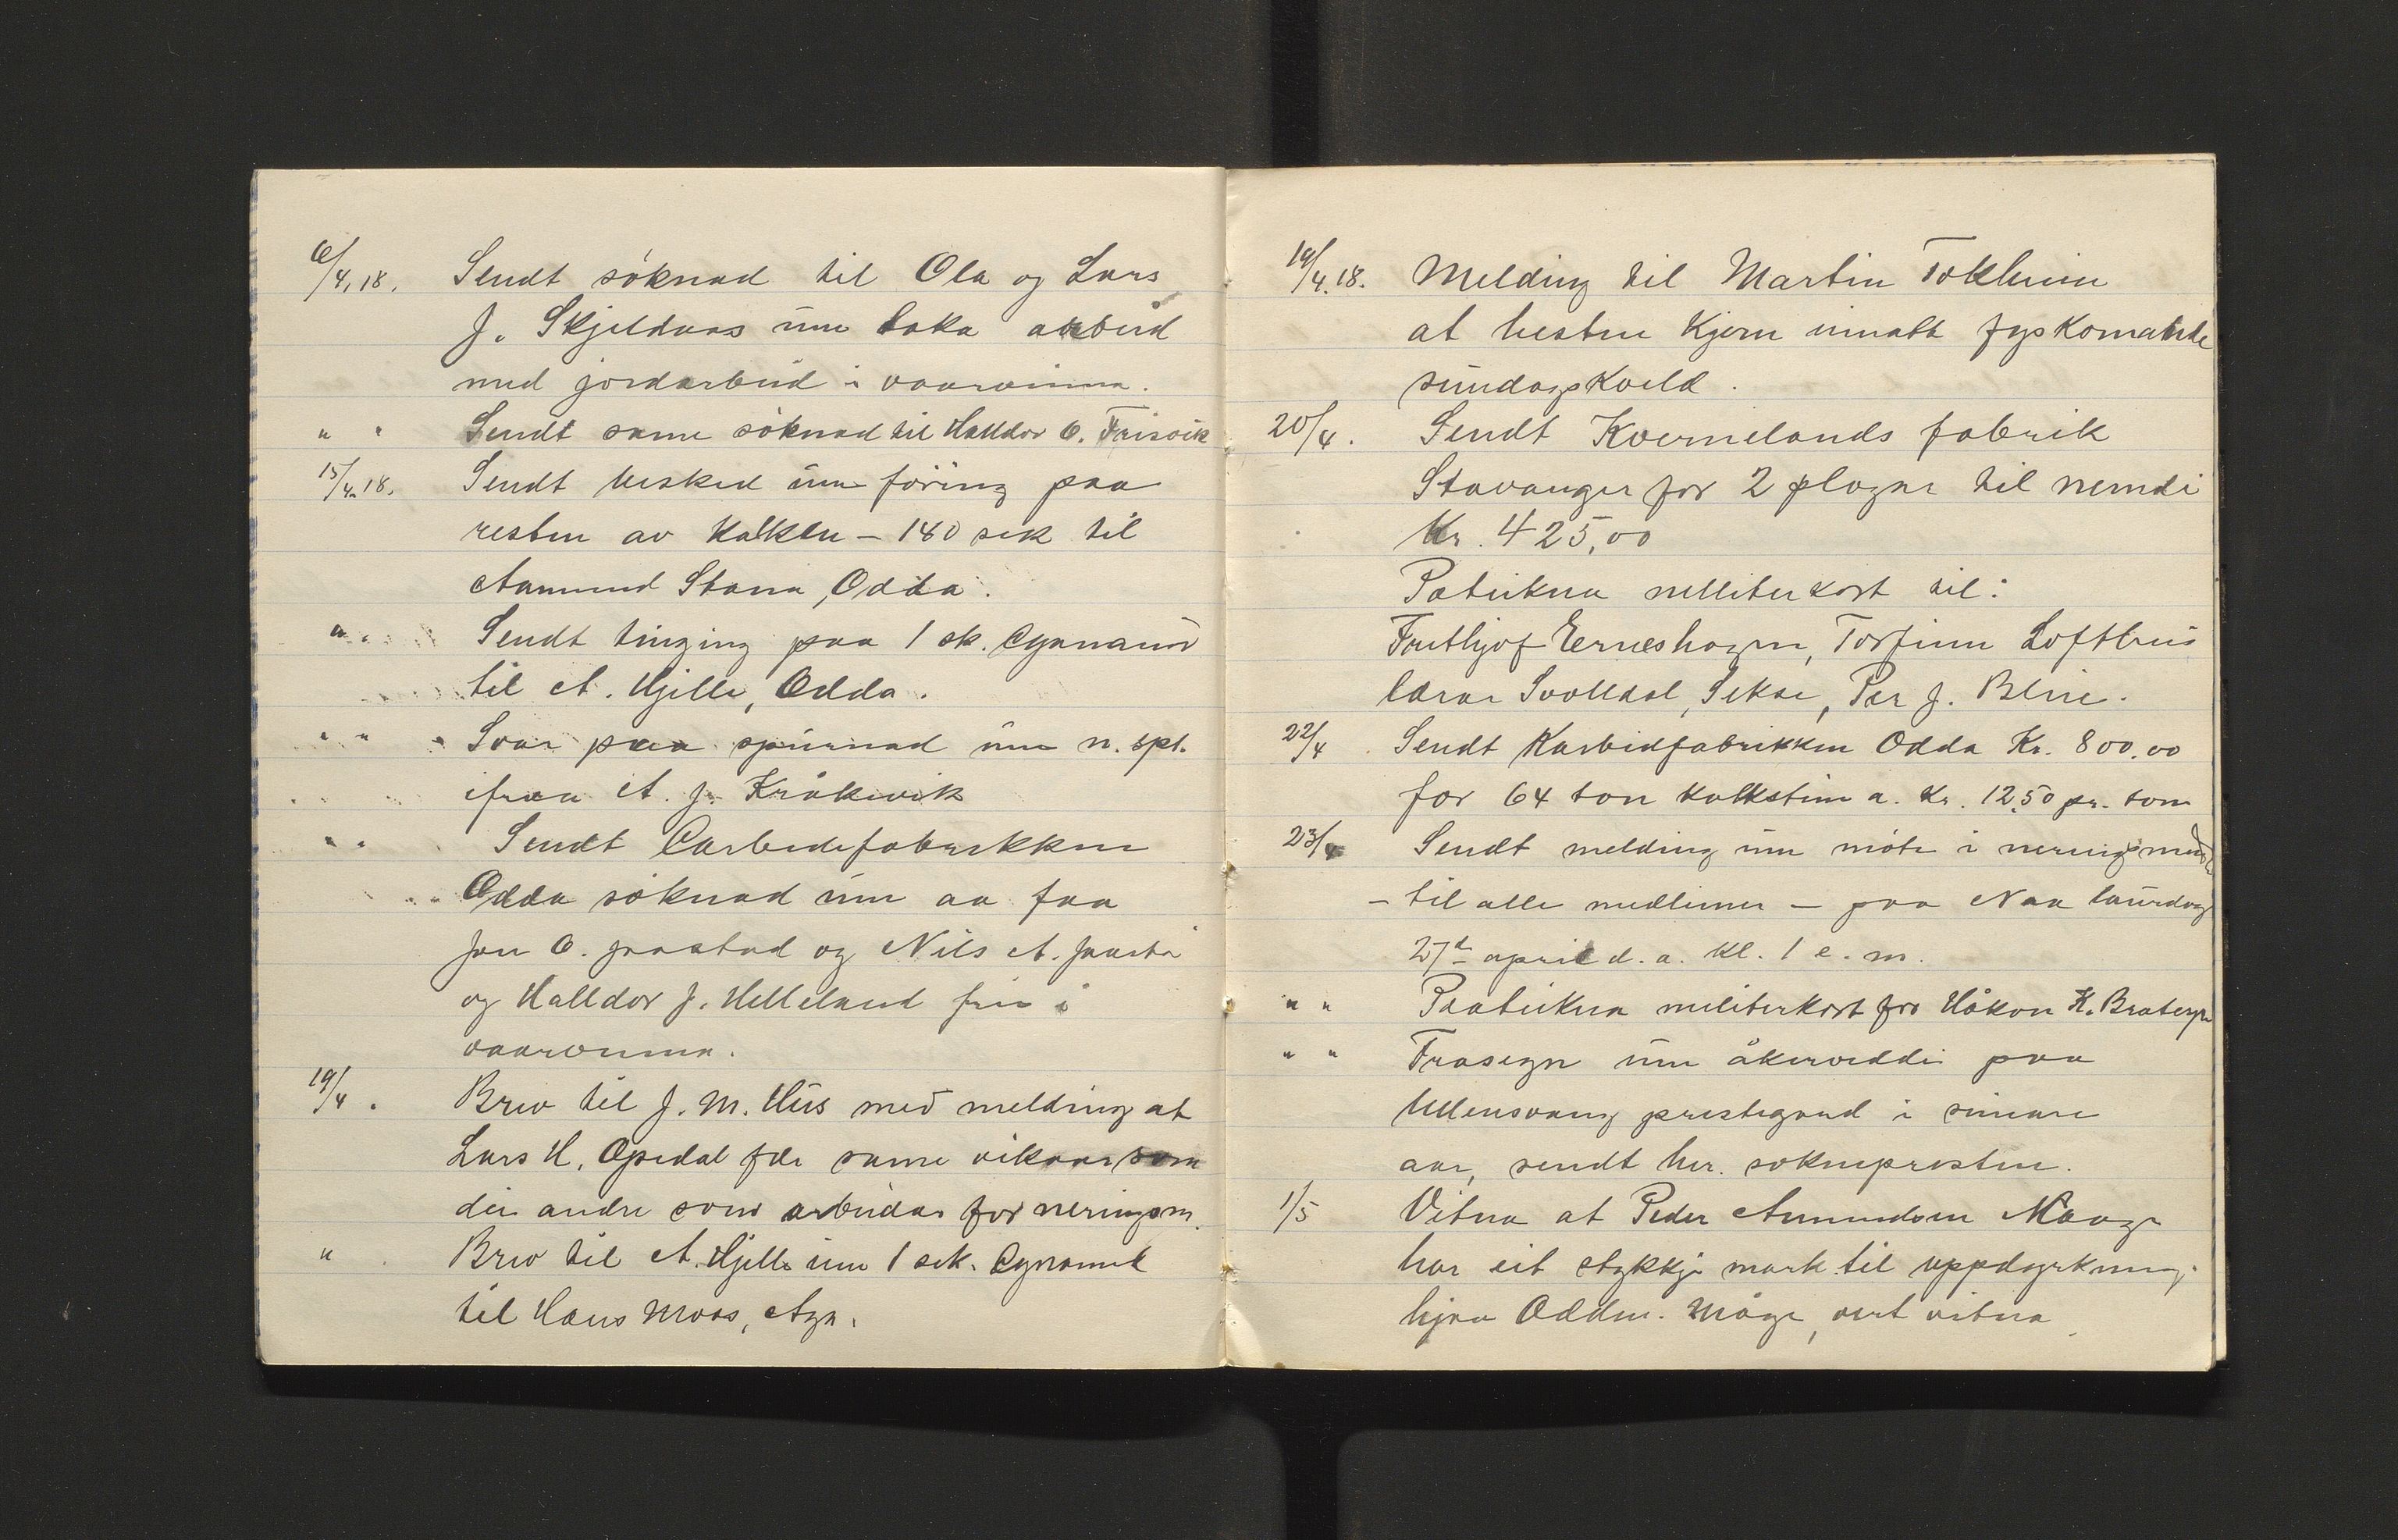 6/4.18. Sendt söknad til Ola og Lars
J. Skjeldaas um taka arbeid
med jordarbeid i vaarvinna.
" " Sendt same söknad til Halldor O. Freisvik
15/4.18. Sendt besked um föring paa
resten av kalken – 140 sek til
Aamund Stana, Odda.
" . Sendt tinging paa 1 sk. Cyanamid
til A. Hjelle, Odda.
" " Svar paa spurnad um n. spt.
ifraa A. J. Kråkevik
" " Sendt Carbidefabrikken
Odda söknad um aa faa
Jon O. Jaastad og Nils A. Jaasta
og Halldor J. Helleland fri i
vaaronna.
19/4 . Brev til J. M. Hus med melding at
Lars H. Opedal fær same vikaar som
dei andre som arbeidar for neringsn.
" Brev til A. Hjelle um 1 sek. Cynamid
til Hans Moos, Aga.
19/4.18. Melding til Martin Tokheim
at hesten kjem innatt fyskomande
sundagskveld.
20/4. Sendt Kvernelands fabrik
Stavanger for 2 plogar til nemdi
Kr. 425,00
Paateikna militerkort til:
Frithjof Erneshagen, Torfinn Lofthus
lærar Svolldal, Sekse, Per J. Blie.
22/4 . Sendt Karbidfabrikken Odda Kr. 800.00
for 64 ton kalkstein a. Kr. 12,50 pr. tom
23/4 Sendt melding um möte i neringsnemd
– til alle medlemer – paa Naa laurdag
27de april d. a. kl. 1 e. m.
" " Paateikna militerkort for Håkon K. Bratespe
" " Frasegn um åkervidde paa
Ullensvang prestegard i sumar
aar, sendt hr. sokneprosten.
1/5 Vitna at Peder Amundsen Maage
har eit stykkje mark til uppdyrkning
hjaa Oddm. Måge, vert vitna